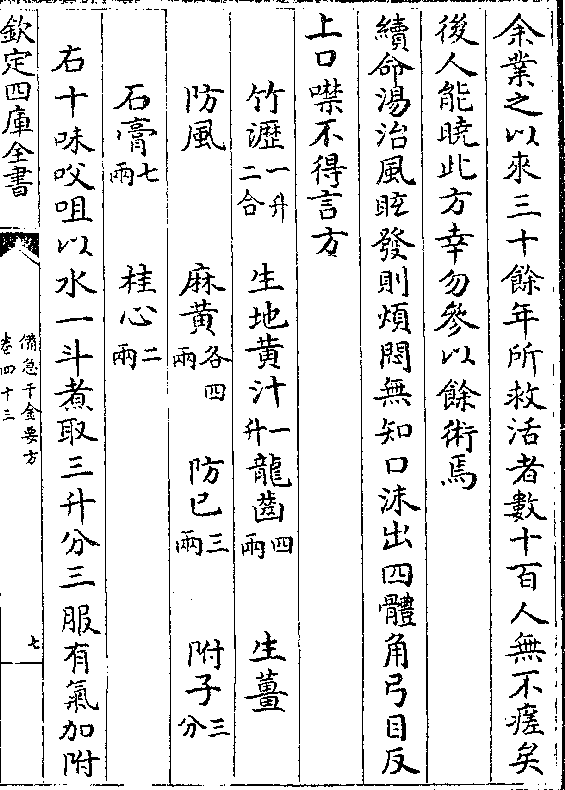 余業之以來三十餘年所救活者數十百人無不瘥矣
後人能曉此方幸勿參以餘術焉
續命湯治風眩發則煩悶無知口沫出四體角弓目反
上口噤不得言方
竹瀝一升二合 生地黄汁一升 龍齒四兩 生薑
防風 麻黄各四兩 防已三兩 附子三分
石膏七兩 桂心二兩
右十味㕮咀以水一斗煮取三升分三服有氣加附
欽定四庫全書
備急千金要方
卷四十三
七